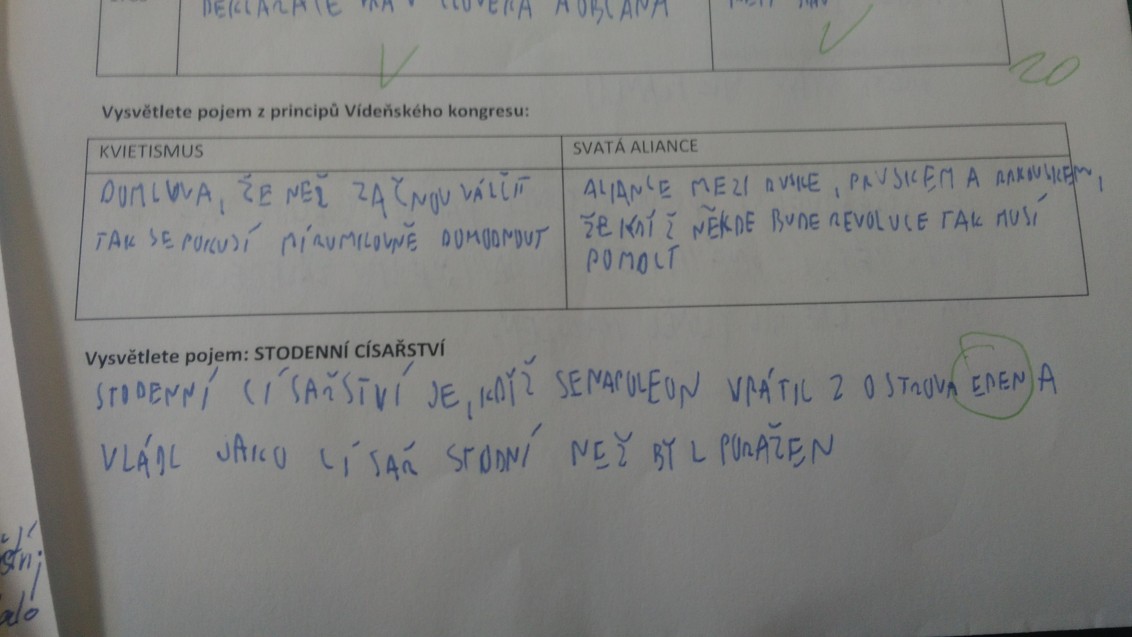 DEKLARACE PRÁV ČLOVĚKA A OBČANA
20
Vysvětlete pojem z principů Vídeňského kongresu:
KVIETISMUS
SVATÁ ALIANCE
DOMLUVA, ŽE NEŽ ZAČNOU VÁLČIT
TAK SE POKUSÍ MÍRUMILOVNĚ DOHODNOUT
ALIANCE MEZI RUSKE, PRUSKEM A RAKOUSKEM,
ŽE KDÍŽ NĚKDE BUDE REVOLUCE TAK MUSÍ
POMOCT
Vysvětlete pojem: STODENNÍ CÍSAŘSTVÍ
STODENNÍ CÍSAŘSTVÍ JE, KDÍŽ SE NAPOLEON VRÁTIL Z OSTROVA EDEN A
VLÁDL JAKO CÍSAŘ STO DNÍ NEŽ BYL PORAŽEN